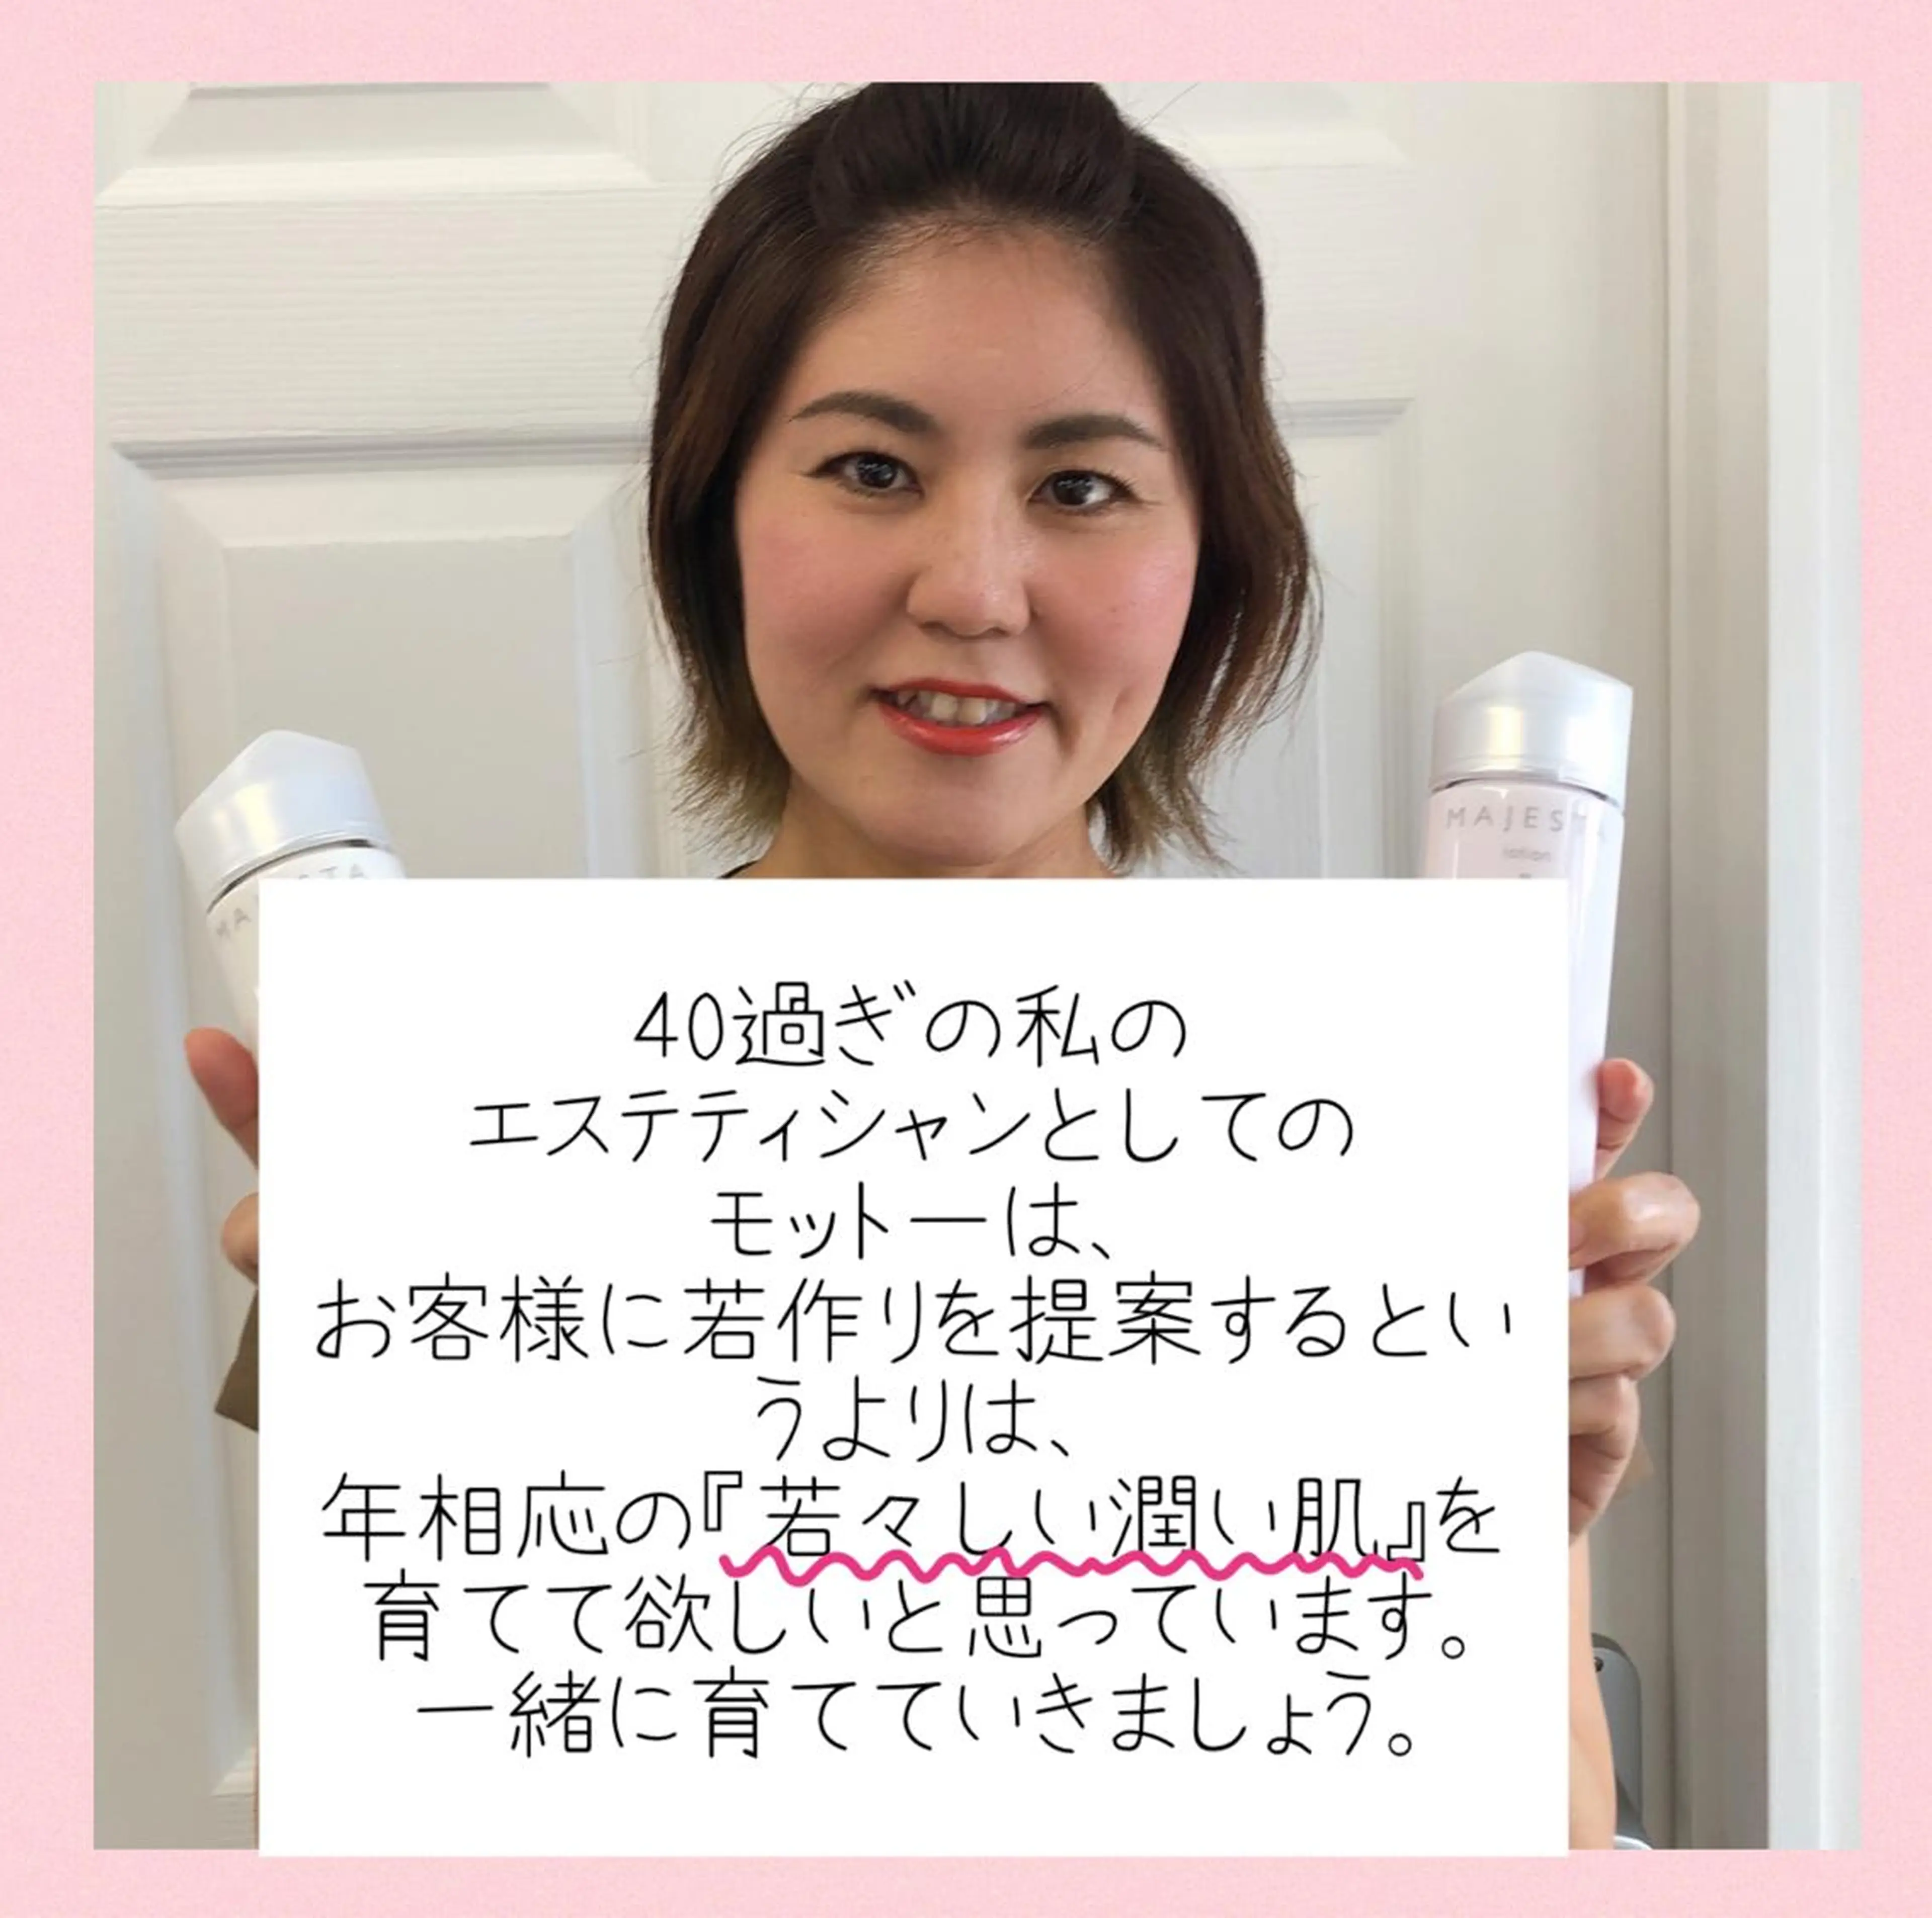 MAJES
lotion
40過ぎの私の
エステティシャンとしての
モットーは、
お客様に若作りを提案するとい
うよりは、
年相応の『若々しい潤い肌』を
育てて欲しいと思っています。
一緒に育てていきましょう。